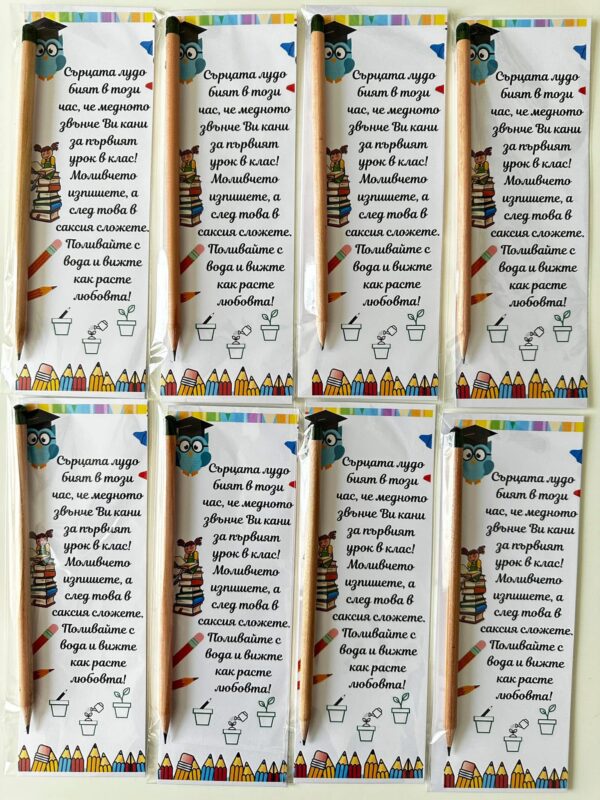 Сърцата лудо
бият в този
час, че медното
звънче Ви кани
за първият
урок в клас!
Моливчето
изпишете, а
след това в
саксия сложете.
Поливайте с
вода и вижте
как расте
любовта!
Сърцата лудо
бият в този
час, че медното
звънче Ви кани
за първият
урок в клас!
Моливчето
изпишете, а
след това в
саксия сложете.
Поливайте с
вода и вижте
как расте
любовта!
Сърцата лудо
бият в този
час, че медното
звънче Ви кани
за първият
урок в клас!
Моливчето
изпишете, а
след това в
саксия сложете.
Поливайте с
вода и вижте
как расте
любовта!
Сърцата лудо
бият в този
час, че медното
звънче Ви кани
за първият
урок в клас!
Моливчето
изпишете, а
след това в
саксия сложете.
Поливайте с
вода и вижте
как расте
любовта!
Сърцата лудо
бият в този
час, че медното
звънче Ви кани
за първият
урок в клас!
Моливчето
изпишете, а
след това в
саксия сложете.
Поливайте с
вода и вижте
как расте
любовта!
Сърцата лудо
бият в този
час, че медното
звънче Ви кани
за първият
урок в клас!
Моливчето
изпишете, а
след това в
саксия сложете.
Поливайте с
вода и вижте
как расте
любовта!
Сърцата лудо
бият в този
час, че медното
звънче Ви кани
за първият
урок в клас!
Моливчето
изпишете, а
след това в
саксия сложете.
Поливайте с
вода и вижте
как расте
любовта!
Сърцата лудо
бият в този
час, че медното
звънче Ви кани
за първият
урок в клас!
Моливчето
изпишете, а
след това в
саксия сложете.
Поливайте с
вода и вижте
как расте
любовта!